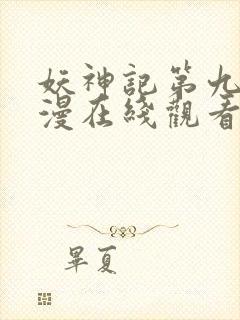 妖神記第九
漫在綫觀看
畢夏